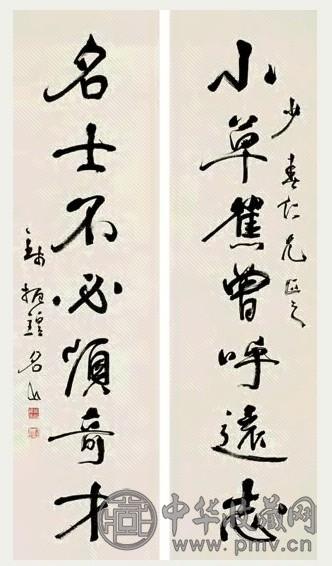 小草舊曾呼遠志
少春仁兄正之
名士不必須奇才
錢振鍠名山
中华收藏网
www.pmv.cn